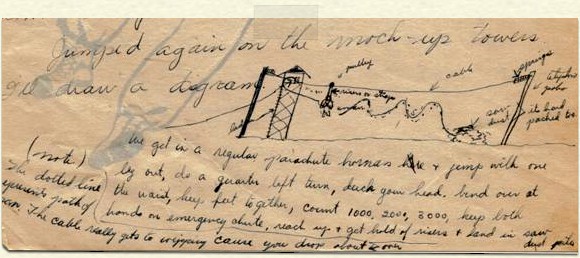 Jumped again on the mock-up towers
I'll draw a digram.
pulley
cable
springs
risers or straps
saw dust
its hard packed to
(note)
The dotted line represents path of man. The cable really gets to whipping cause you drop about
We get in a regular parachute harness & jump with one
leg out, do a quarter left turn, duck your head. bend over at
the waist, keep feet together, count 1000, 2000, 3000, keep both
hands on emergency chute, reach up & get hold of risers & land in saw
dust piles